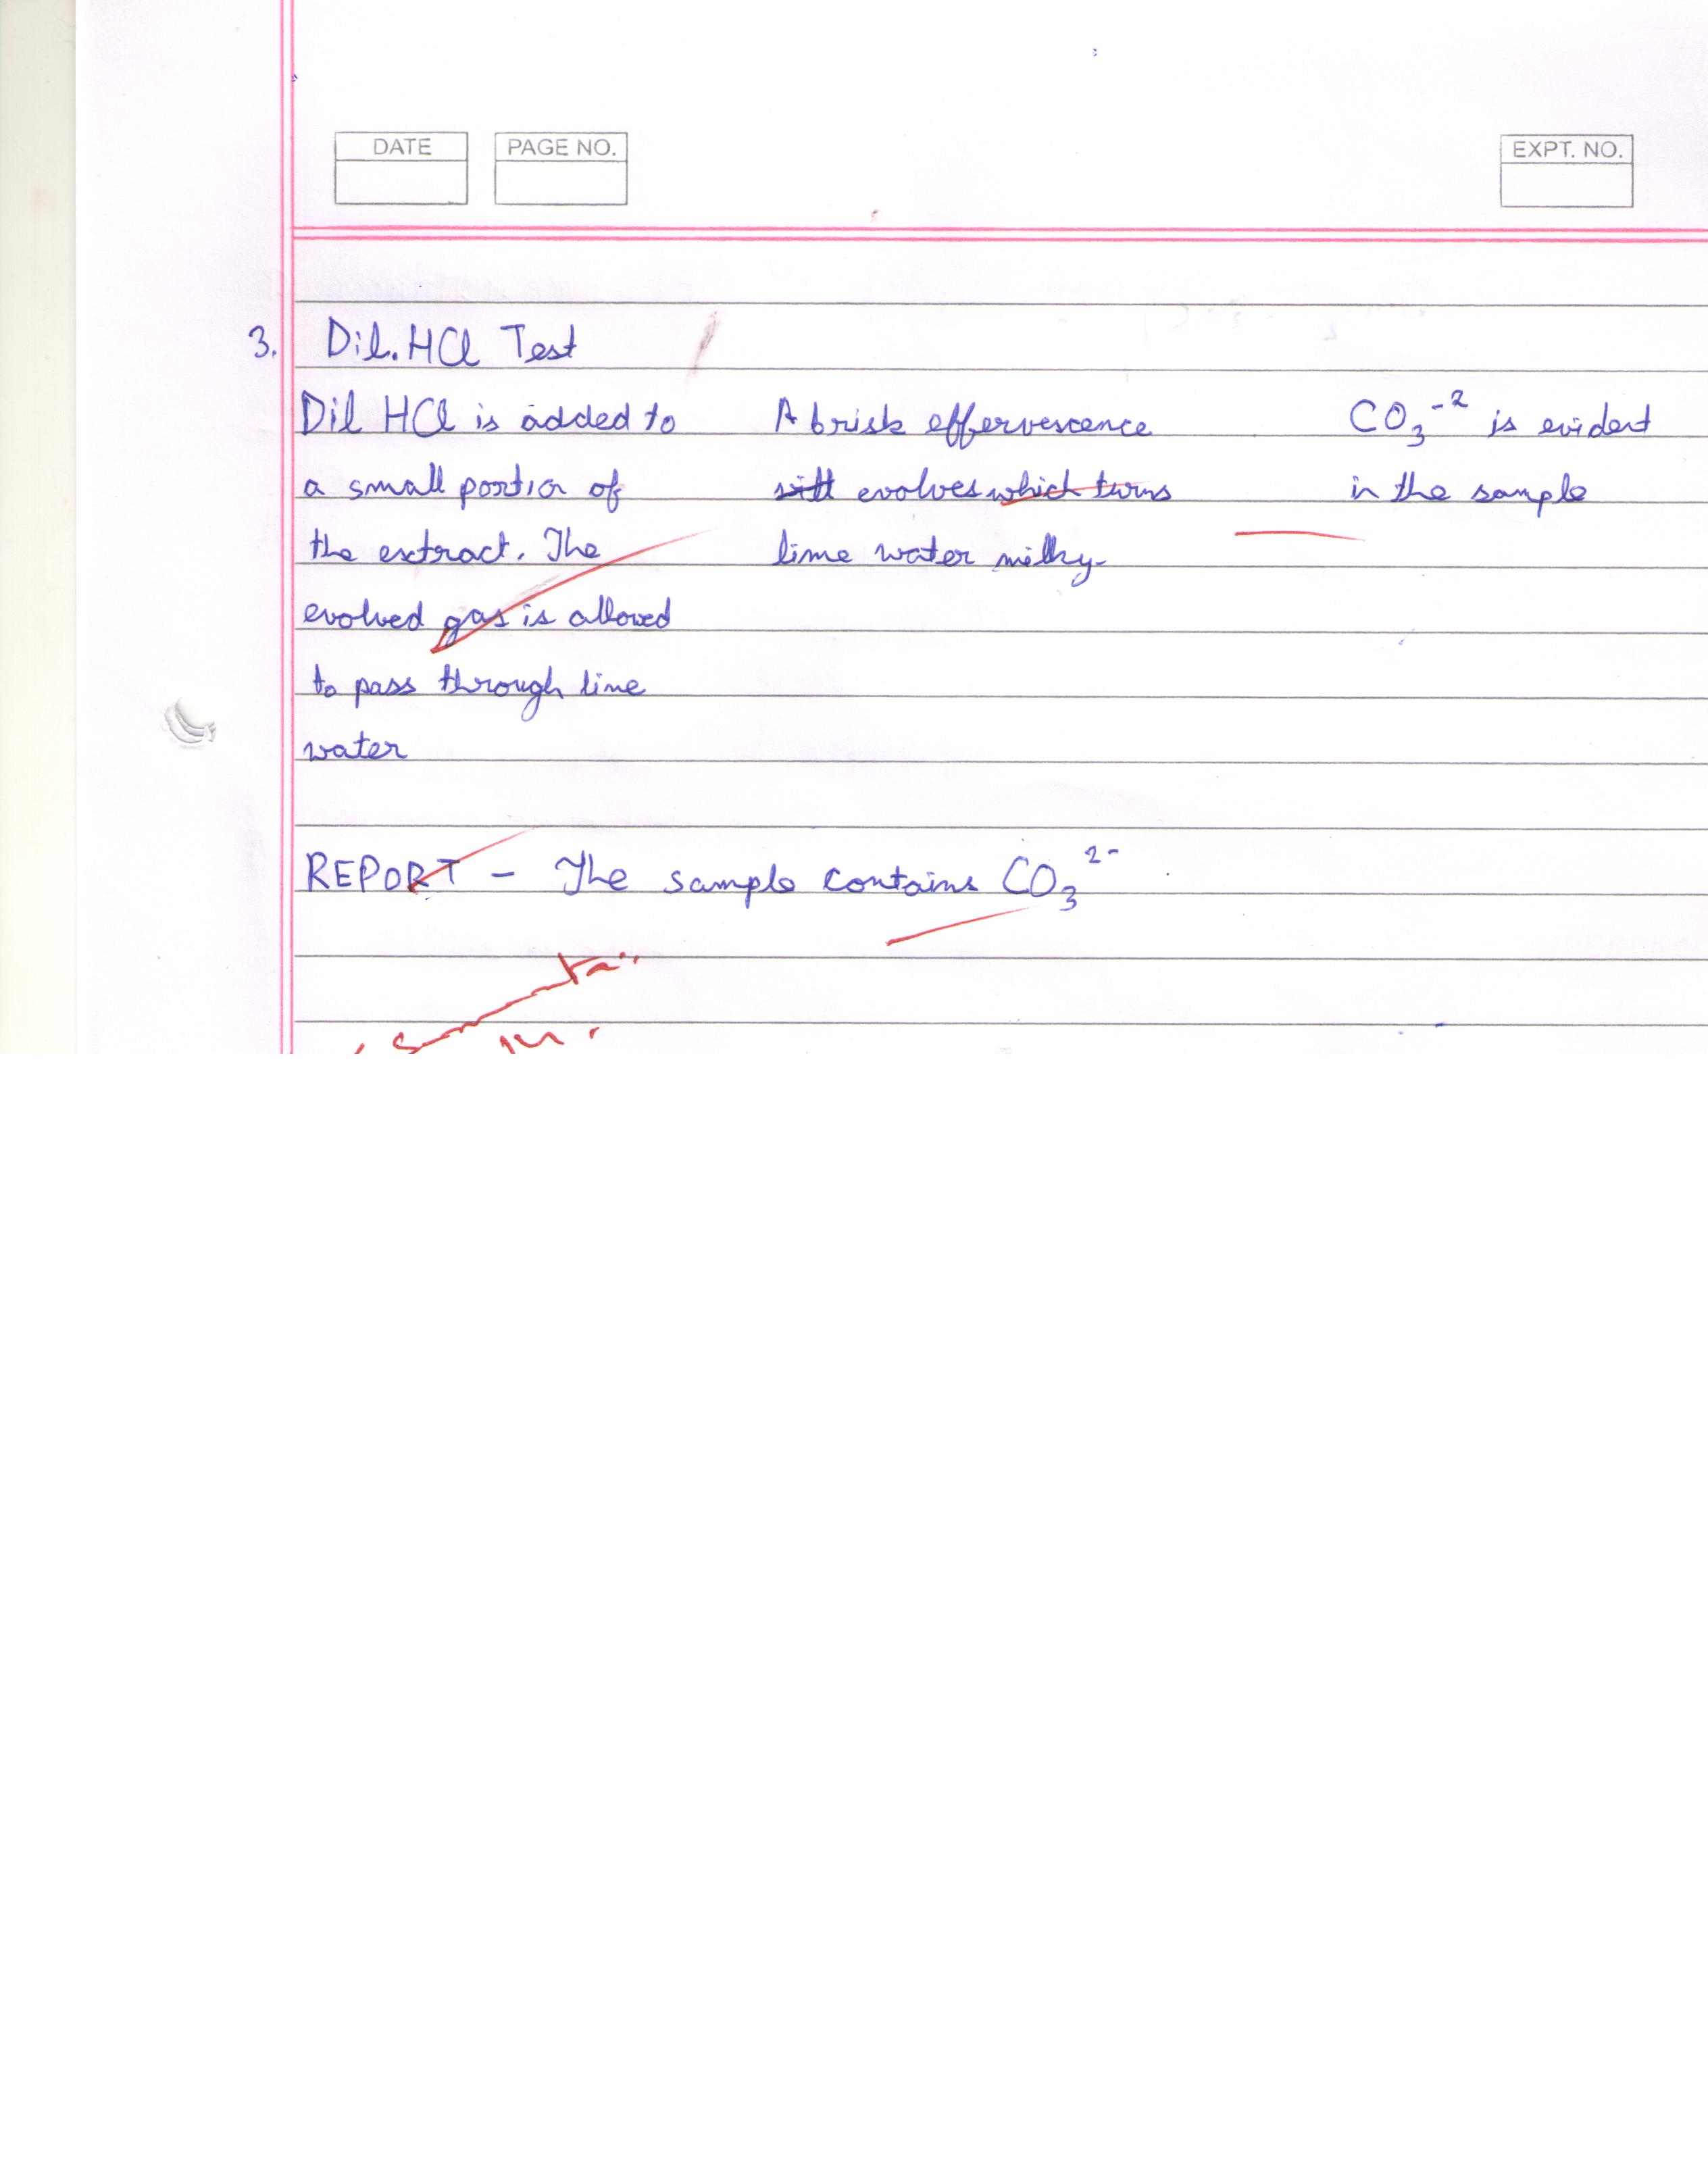 DATE
PAGE NO.
EXPT. NO.
3. Dil. HCl Test
Dil HCl is added to
a small portion of
the extract. The
evolved gas is allowed
to pass through lime
water
A brisk effervescence
evolves which turns
lime water milky.
CO₃⁻² is evident
in the sample
REPORT - The sample contains CO₃²⁻